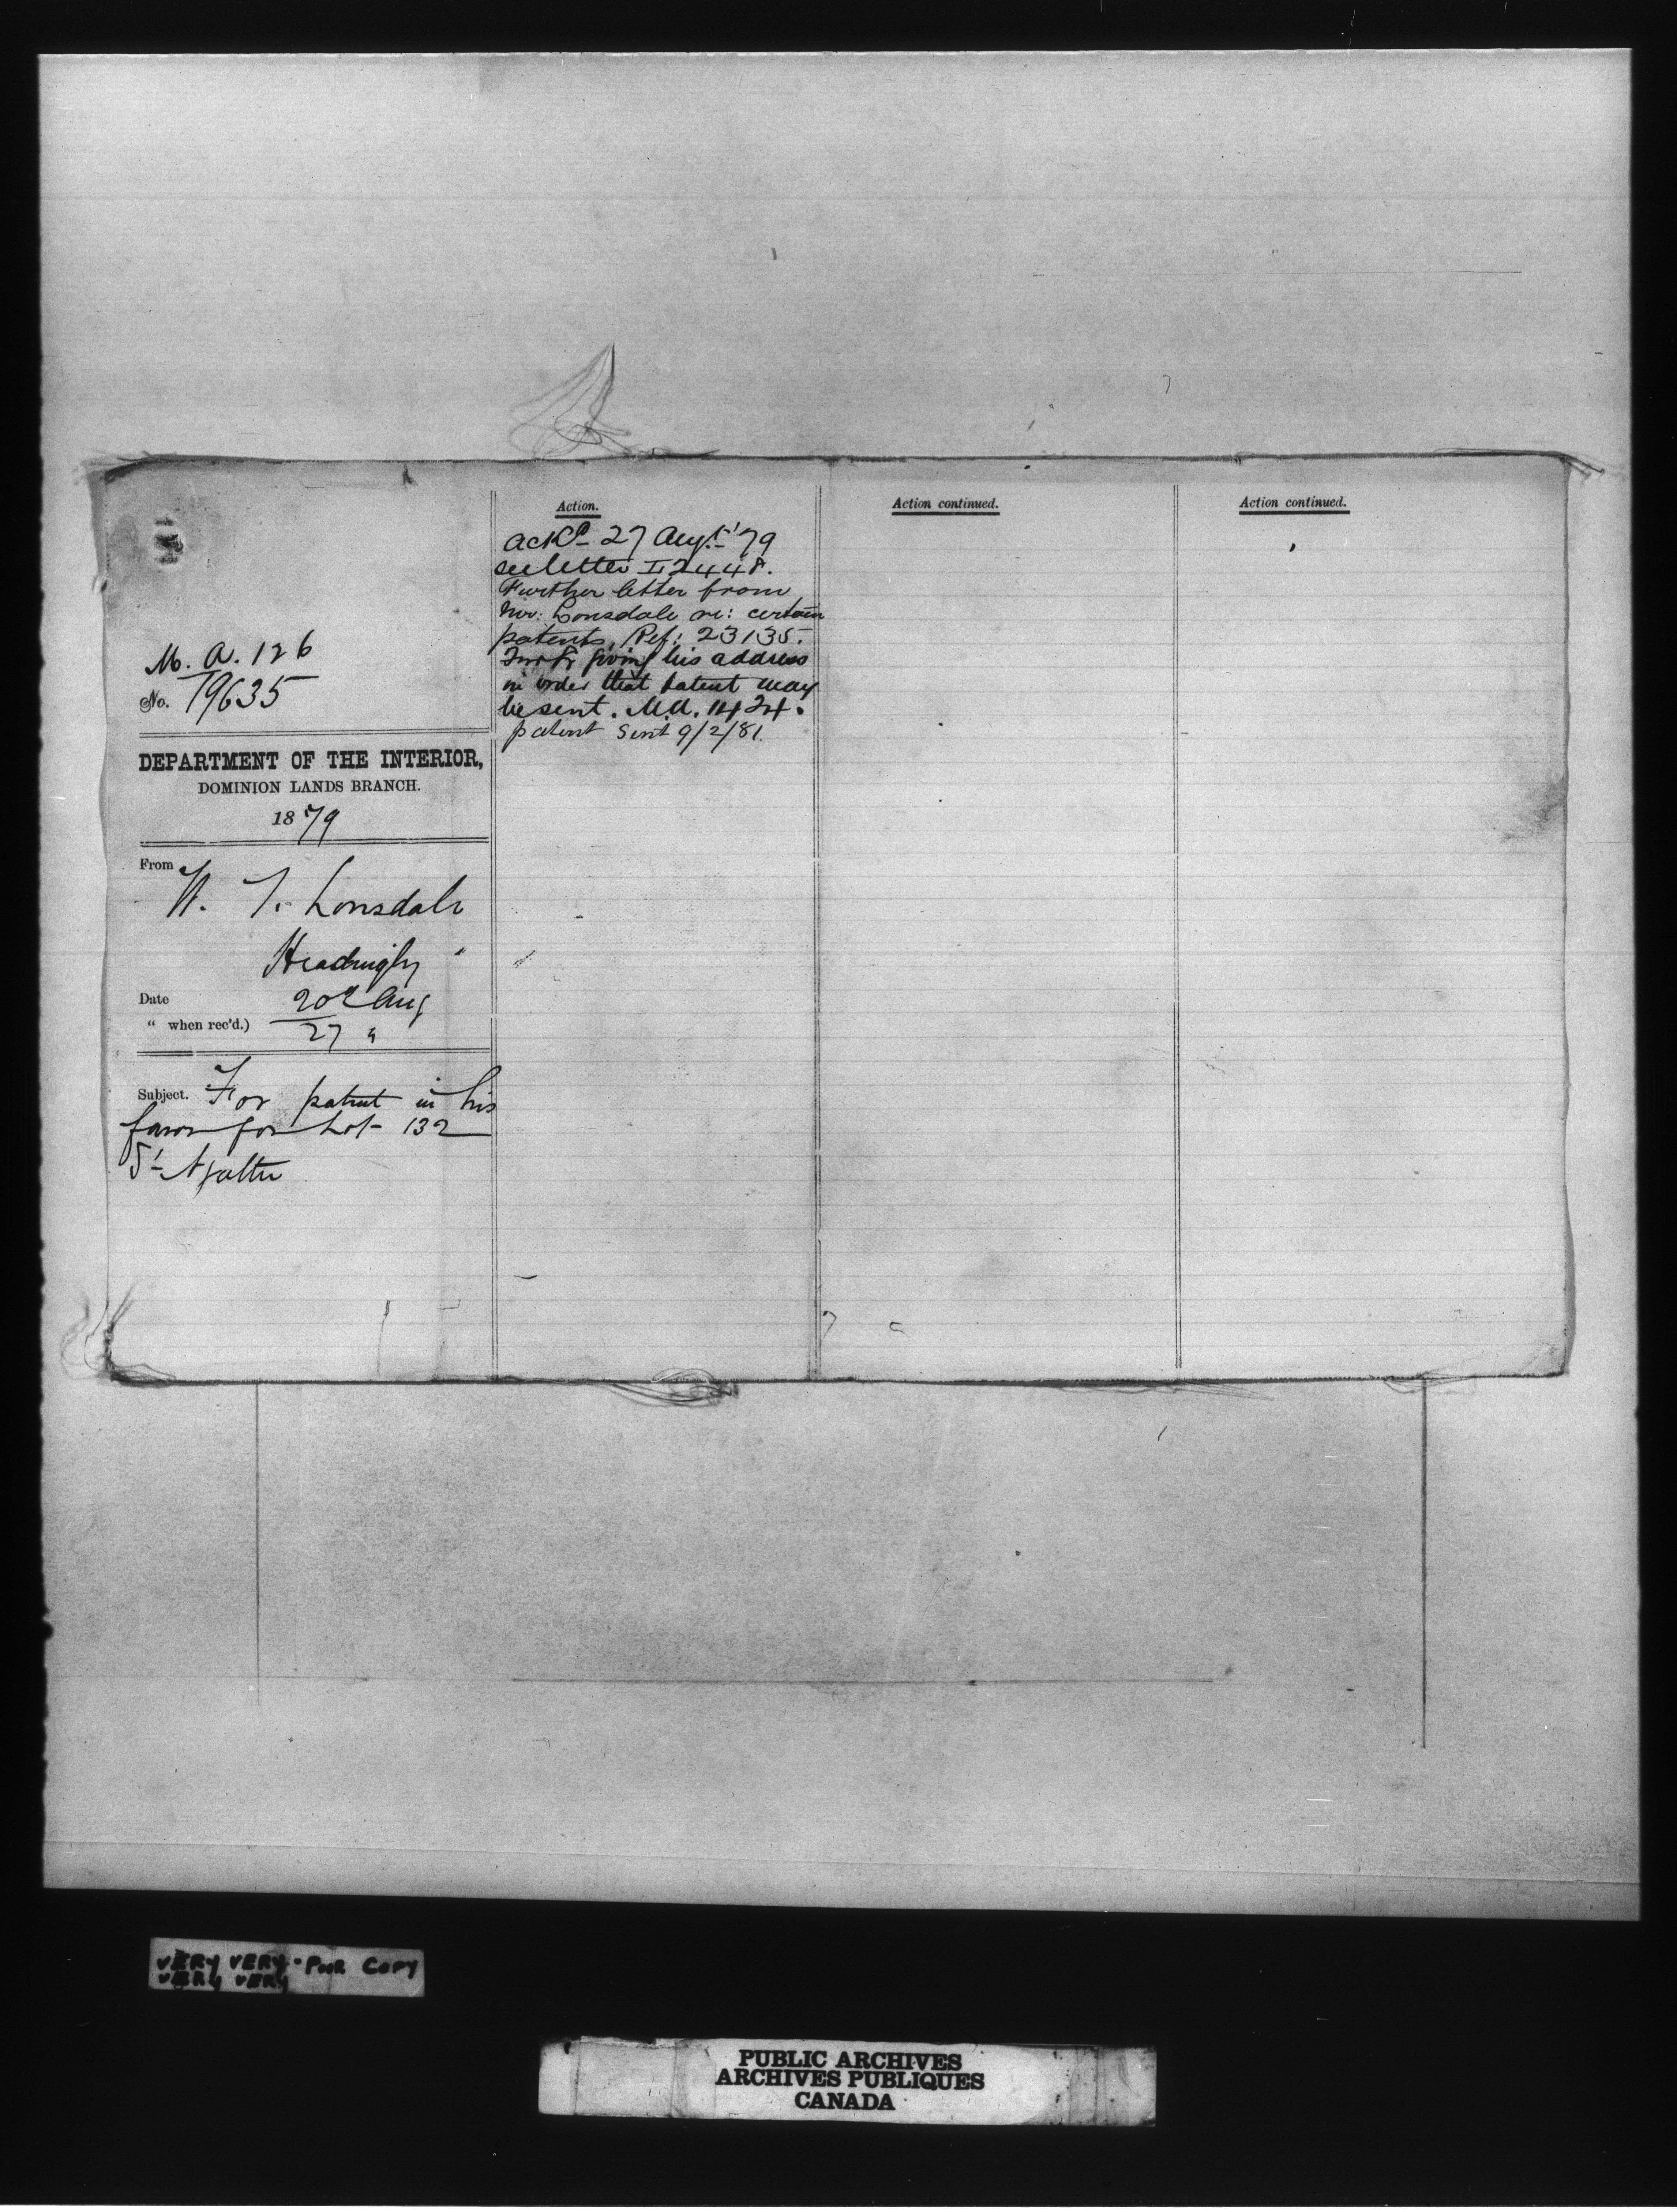 M. A. 126
No. 19635
DEPARTMENT OF THE INTERIOR,
DOMINION LANDS BRANCH.
1879
From W. T. Lonsdale
Headingly
Date 20th Aug
" when rec'd.) 27 "
Subject. For patent in his
favor for Lot 132
St Agathe
Action.
Ackd 27 Augt '79
see letter 12448.
Further letter from
Mr: Lonsdale re: certain
patents, Ref: 23135.
giving his address
in order that patent may
be sent. M.A. 1424.
patent sent 9/2/81.
Action continued.
Action continued.
VERY VERY - POOR COPY
VERY VERY
PUBLIC ARCHIVES
ARCHIVES PUBLIQUES
CANADA